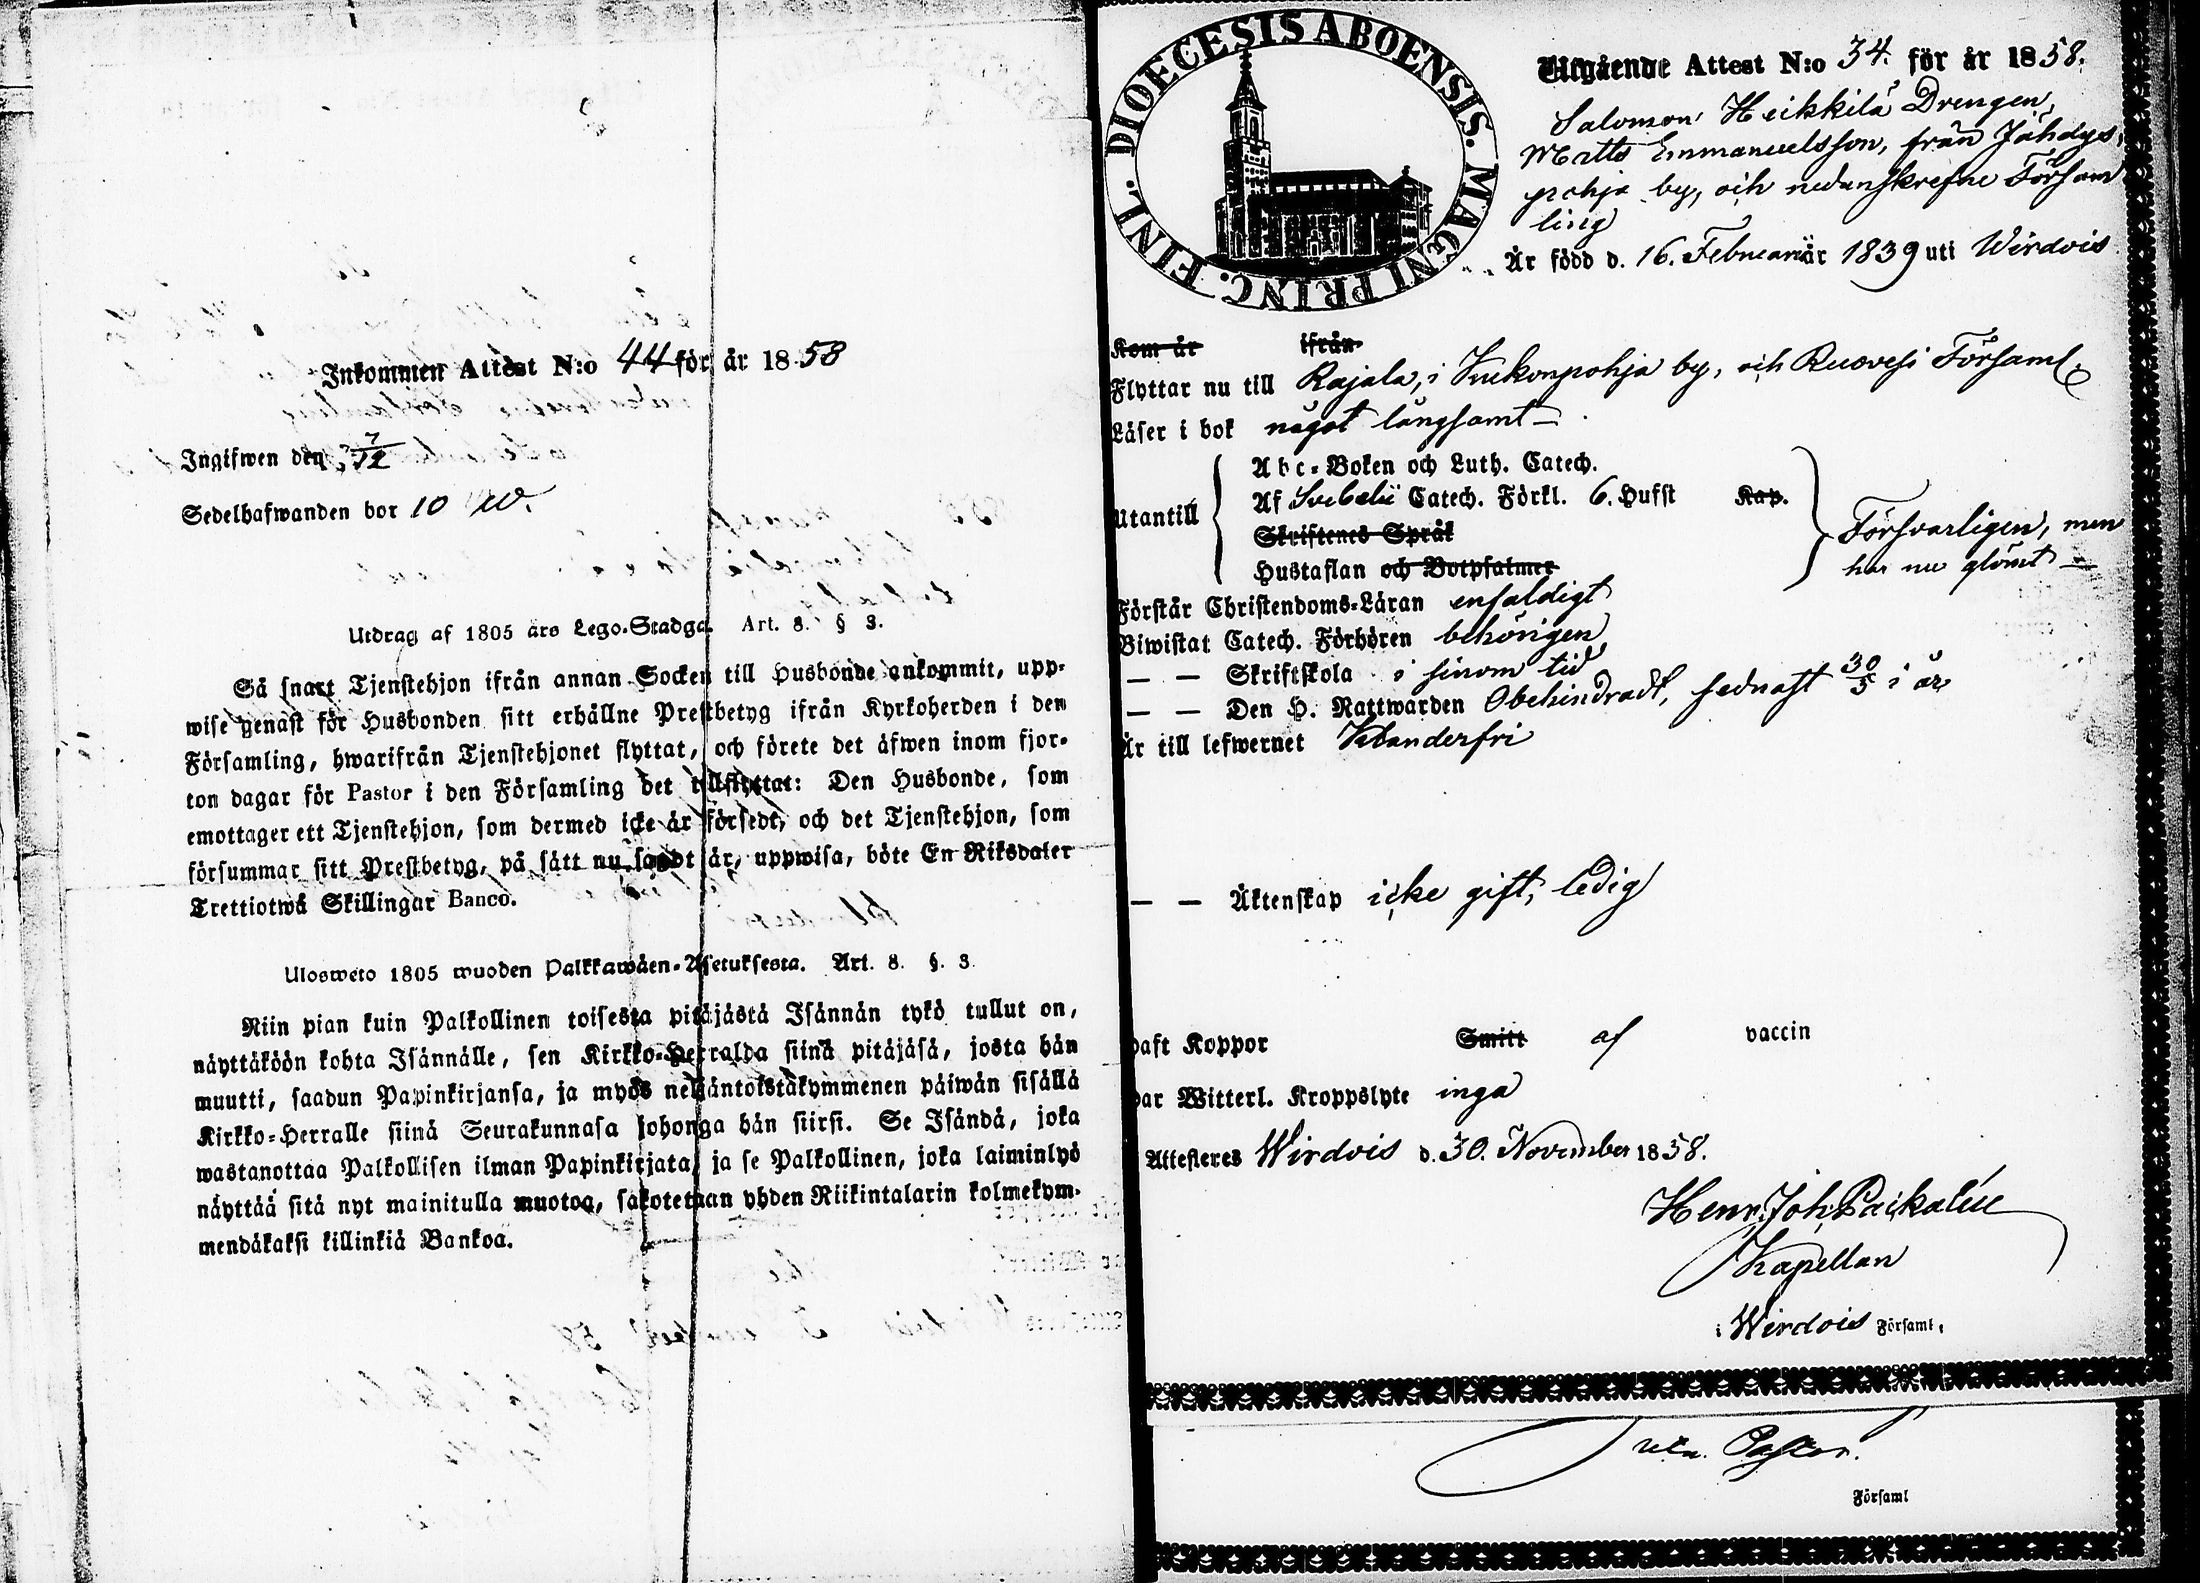 Inkommen Attest N:o 44 för år 1858
Ingifwen den 7/12
Sedelhafwanden bor 10
Utdrag af 1805 års Lego-Stadga. Art. 8. § 3.
Så snart Tjenstehjon ifrån annan Socken till Husbonde ankommit, upp-
wise genast för Husbonden sitt erhållne Prestbetyg ifrån Kyrkoherden i den
Församling, hwarifrån Tjenstehjonet flyttat, och förete det äfwen inom fjor-
ton dagar för Pastor i den Församling det tillflyttat: Den Husbonde, som
emottager ett Tjenstehjon, som dermed icke är försedt, och det Tjenstehjon, som
försummar sitt Prestbetyg, på sätt nu sagdt är, uppwisa, böte En Riksdaler
Trettiotwå Skillingar Banco.
Ulosweto 1805 wuoden Palkkawäen-Asetuksesta. Art. 8. §. 3.
Niin pian kuin Palkollinen toisesta pitäjästä Isännän tykö tullut on,
näyttäköön kohta Isännälle, sen Kirkko-Herralda siinä pitäjäsä, josta hän
muutti, saadun Papinkirjansa, ja myös neljäntoistakymmenen päiwän sisällä
Kirkko-Herralle siinä Seurakunnasa johonga hän siirsi. Se Isändä, joka
wastanottaa Palkollisen ilman Papinkirjata, ja se Palkollinen, joka laiminlyö
näyttää sitä nyt mainitulla muotoa, sakotetaan yhden Riikintalarin kolmekym-
mendäkaksi killinkiä Bankoa.
DIOECESIS ABOENSIS. MAGNI PRINC. FINL.
Utgående Attest N:o 34. för år 1858.
Salomon Heikkilä Drengen,
Matts Emmanuelsson, från Jähdys-
pohja by, och nedanskrefne Försam
ling
Är född d. 16. Februari år 1839 uti Wirdois
Kom år ifrån
Flyttar nu till Rajala, i Kukonpohja by, och Ruovesi Församl.
Läser i bok något långsamt
Utantill
Abc-Boken och Luth. Catech.
Af Svebelii Catech. Förkl. 6. Hufst Kap.
Skriftenes Språk
Hustaflan och Botpsalmer
Försvarligen, men
har nu glömt
Förstår Christendoms-Läran enfaldigt
Biwistat Catech. Förhören behörigen
— — Skriftskola i sinom tid
— — Den H. Nattwarden Obehindradt, sednast 30/5 i år
Är till lefwernet klanderfri
— — Äktenskap icke gift, ledig
Haft Koppor Smitt af vaccin
Har Witterl. Kroppslyte inga
Attesteres Wirdois d. 30. November 1858.
Henr. Joh.
Kapellan
i Wirdois Församl.
Pastor.
Församl